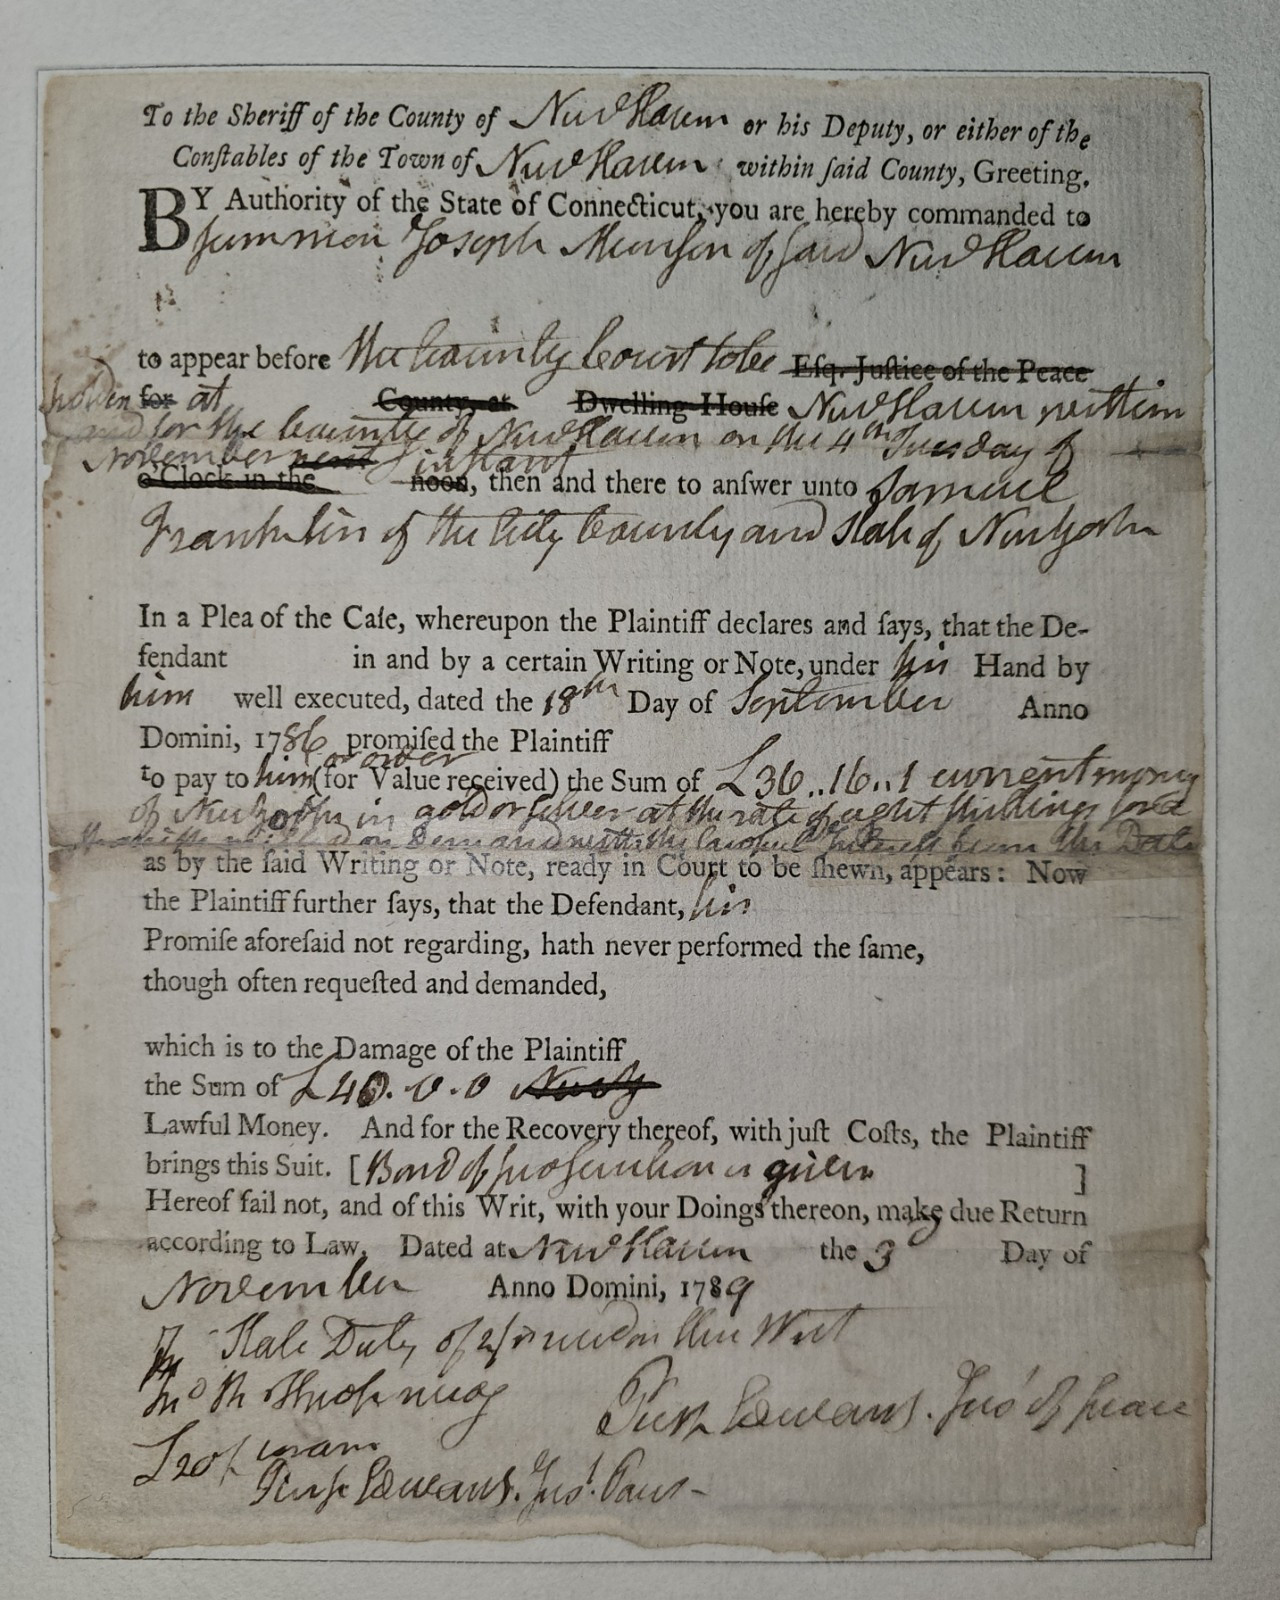 To the Sheriff of the County of New Haven or his Deputy, or either of the
Conſtables of the Town of New Haven within ſaid County, Greeting.
BY Authority of the State of Connecticut, you are hereby commanded to
ſummon Joseph Munſon of ſaid New Haven
to appear before the County Court to be Eſq. Juſtice of the Peace
holden for at County, at Dwelling-Houſe New Haven within
and for the County of New Haven on the 4th Tuesday of
November next inſtant
o'Clock in the noon, then and there to anſwer unto Samuel
Franklin of the City County and State of New York
In a Plea of the Caſe, whereupon the Plaintiff declares and ſays, that the De-
fendant in and by a certain Writing or Note, under his Hand by
him well executed, dated the 18th Day of September Anno
Domini, 1786 promiſed the Plaintiff
or order
to pay to him (for Value received) the Sum of £36..16..1 current money
of New York in gold or ſilver at the rate of eight ſhillings for a
on Demand with the Lawful Intereſt from the Date
as by the ſaid Writing or Note, ready in Court to be ſhewn, appears: Now
the Plaintiff further ſays, that the Defendant, his
Promiſe aforeſaid not regarding, hath never performed the ſame,
though often requeſted and demanded,
which is to the Damage of the Plaintiff
the Sum of £40.0.0 New Y
Lawful Money. And for the Recovery thereof, with juſt Coſts, the Plaintiff
brings this Suit. [Bond of proſecution is given ]
Hereof fail not, and of this Writ, with your Doings thereon, make due Return
according to Law. Dated at New Haven the 3 Day of
November Anno Domini, 1789
State Duty of 2/ on this Writ
Pierpt Edwards. Jus' of peace
£20/ coram
Pierpt Edwards. Jus' Pace-